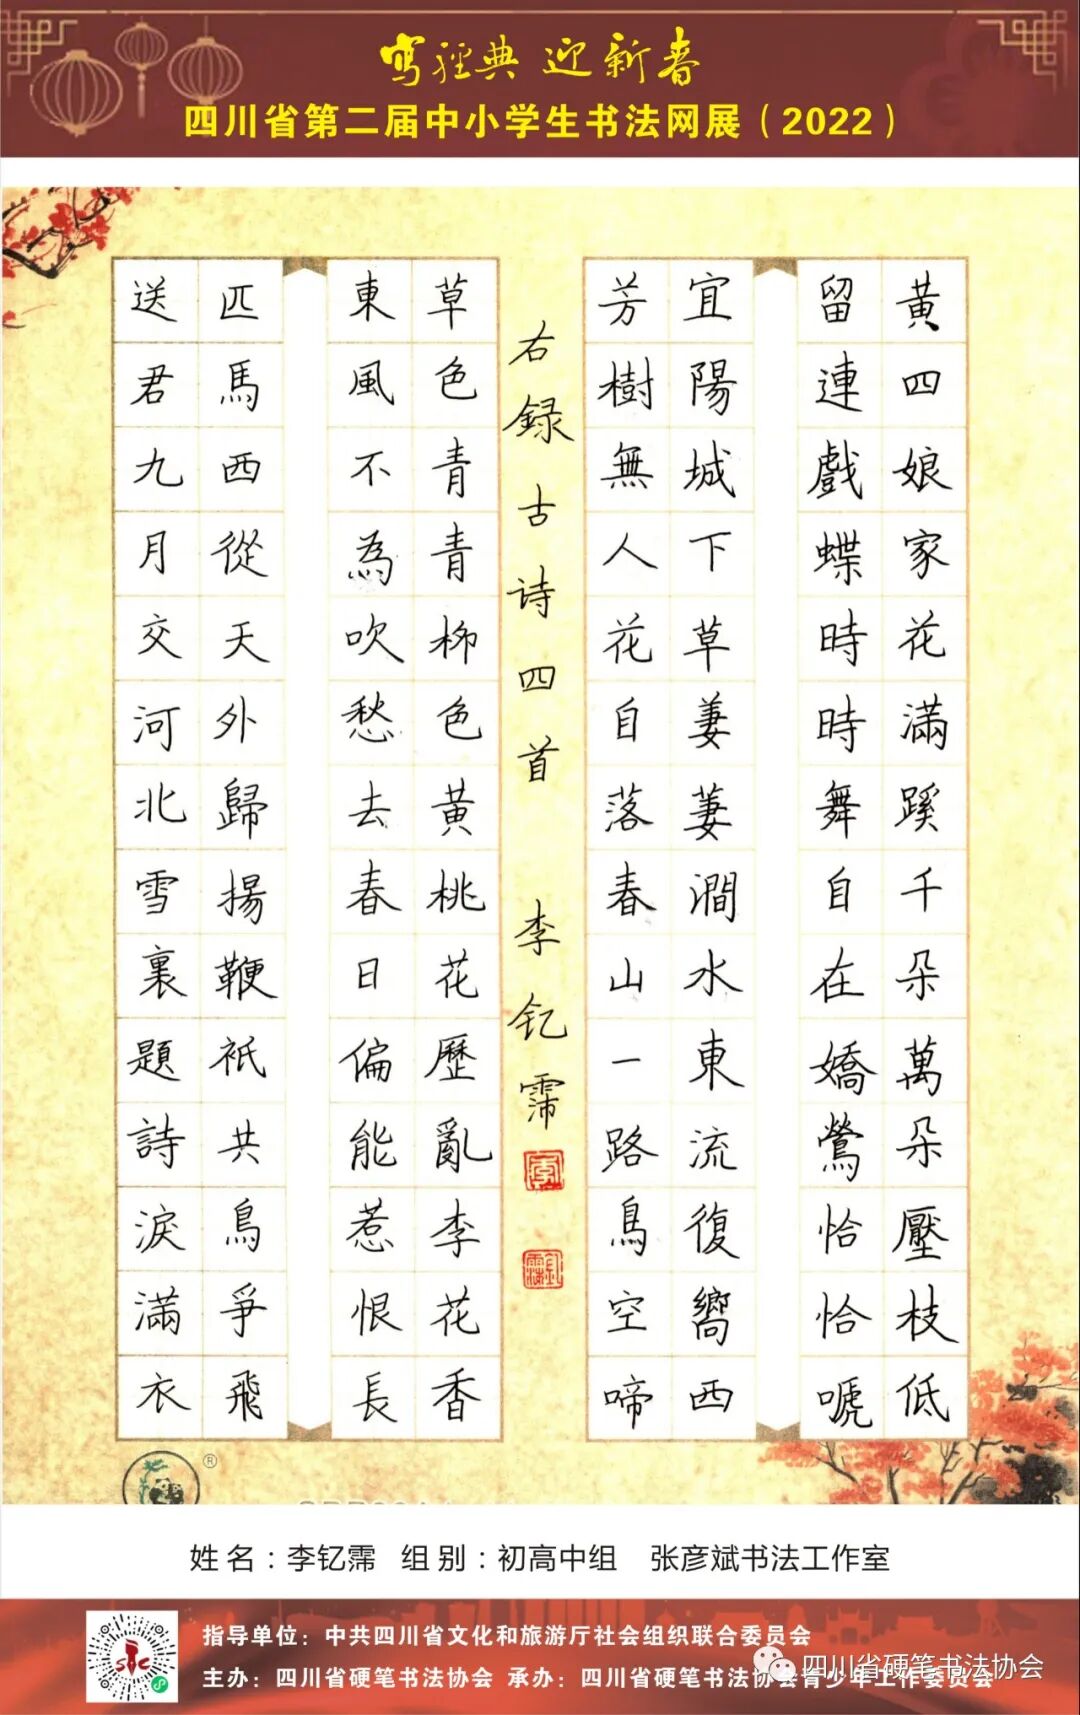 写經典 迎新春
四川省第二届中小学生书法网展（2022）
黄四娘家花滿蹊千朵萬朵壓枝低
留連戲蝶時時舞自在嬌鶯恰恰嗁
宜陽城下草萋萋澗水東流復嚮西
芳樹無人花自落春山一路鳥空啼
右録古诗四首 李钇霈
草色青青柳色黄桃花歷亂李花香
東風不為吹愁去春日偏能惹恨長
匹馬西從天外歸揚鞭衹共鳥爭飛
送君九月交河北雪裏題詩淚滿衣
姓名：李钇霈 组别：初高中组 张彦斌书法工作室
指导单位：中共四川省文化和旅游厅社会组织联合委员会
主办：四川省硬笔书法协会 承办：四川省硬笔书法协会青少年工作委员会
四川省硬笔书法协会